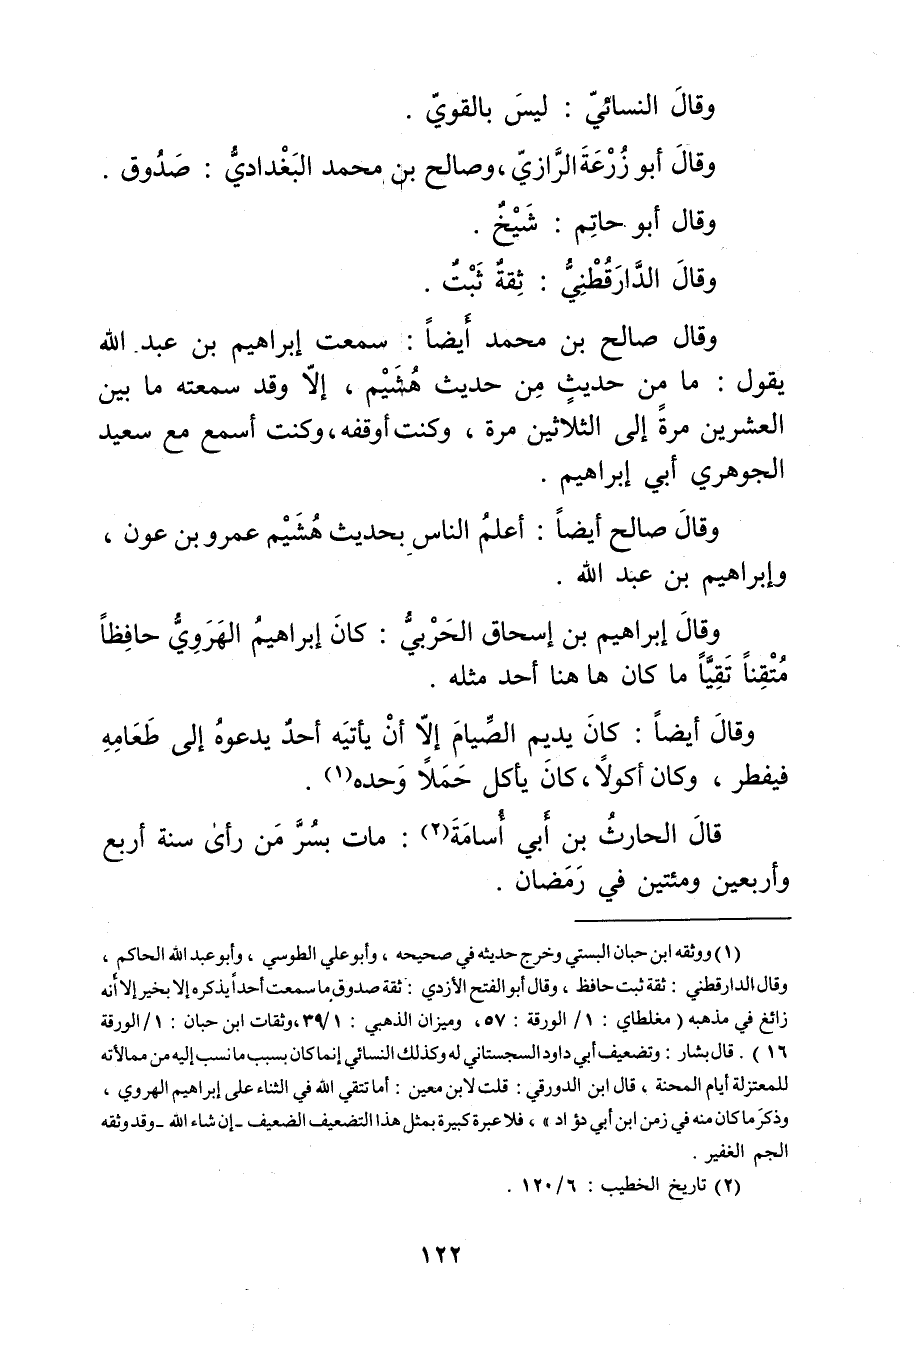 وقالَ النسائيّ : ليسَ بالقويّ .
وقالَ أبو زُرْعَةَ الرَّازيّ ، وصالح بن محمد البَغْداديُّ : صَدُوق .
وقال أبو حاتِم : شَيْخٌ .
وقالَ الدَّارَقُطْنِيُّ : ثِقةٌ ثَبْتٌ .
وقال صالح بن محمد أَيضاً : سمعت إبراهيم بن عبد الله
يقول : ما من حديثٍ مِن حديث هُشَيْم ، إلاّ وقد سمعته ما بين
العشرين مرةً إلى الثلاثين مرة ، وكنت أوقفه ، وكنت أسمع مع سعيد
الجوهري أبي إبراهيم .
وقالَ صالح أيضاً : أعلمُ الناس بحديث هُشَيْم عمرو بن عون ،
وإبراهيم بن عبد الله .
وقالَ إبراهيم بن إسحاق الحَرْبيُّ : كانَ إبراهيمُ الهَرَوِيُّ حافِظاً
مُتْقِناً تَقِيَّاً ما كان ها هنا أحد مثله .
وقالَ أيضاً : كانَ يديم الصِّيامَ إلاّ أنْ يأتيَه أحدٌ يدعوهُ إلى طَعَامِهِ
فيفطر ، وكان أكولاً ، كانَ يأكل حَمَلاً وَحده(١) .
قالَ الحارثُ بن أَبي أُسامَةَ(٢) : مات بسُرَّ مَن رأىٰ سنة أربع
وأربعين ومئتين في رَمَضان .
(١) ووثقه ابن حبان البستي وخرج حديثه في صحيحه ، وأبو علي الطوسي ، وأبو عبد الله الحاكم ،
وقال الدارقطني : ثقة ثبت حافظ ، وقال أبو الفتح الأزدي : ثقة صدوق ما سمعت أحداً يذكره إلا بخير إلا أنه
زائغ في مذهبه ( مغلطاي : ١/ الورقة : ٥٧، وميزان الذهبي : ٣٩/١، وثقات ابن حبان : ١/ الورقة
١٦ ) . قال بشار : وتضعيف أبي داود السجستاني له وكذلك النسائي إنما كان بسبب ما نسب إليه من ممالأته
للمعتزلة أيام المحنة ، قال ابن الدورقي : قلت لابن معين : أما تتقي الله في الثناء على إبراهيم الهروي ،
وذكرَ ما كان منه في زمن ابن أبي دؤاد » ، فلا عبرة كبيرة بمثل هذا التضعيف الضعيف - إن شاء الله - وقد وثقه
الجم الغفير .
(٢) تاريخ الخطيب : ١٢٠/٦ .
١٢٢